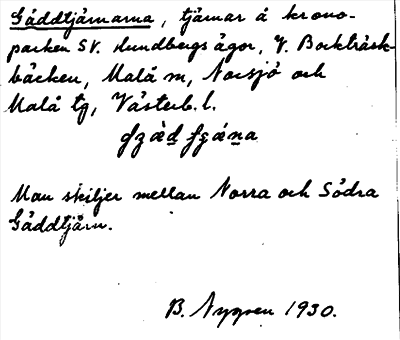 Gäddtjärnarna, tjärnar å krono-
parken SV. Lundbergs ägor, V. Bockträsk-
bäcken, Malå sn, Norsjö och
Malå tg, Västerb. l.
Man skiljer mellan Norra och Södra
Gäddtjärn.
B. Nygren 1930.